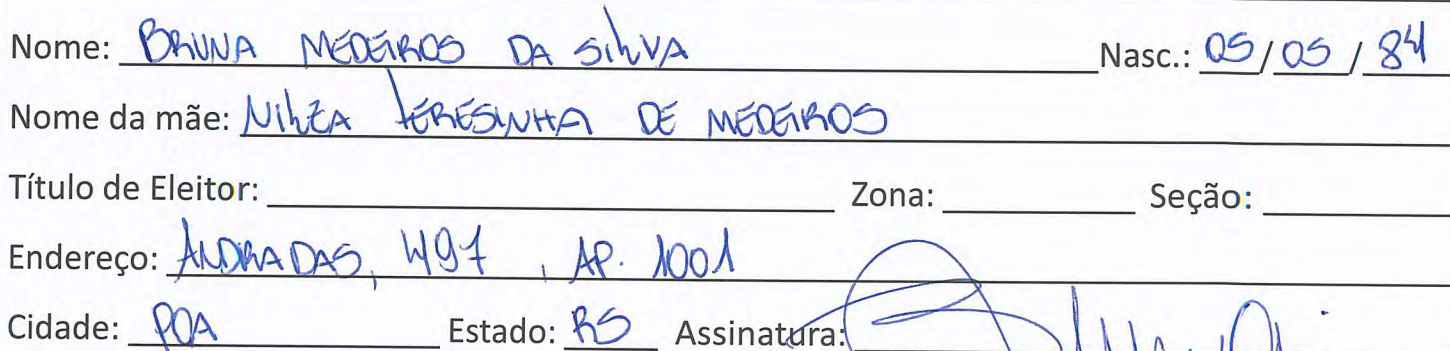 Nome: BRUNA MEDEIROS DA SILVA Nasc.: 05/05/84
Nome da mãe: NILZA TERESINHA DE MEDEIROS
Título de Eleitor: Zona: Seção:
Endereço: ANDRADAS, 497, AP. 1001
Cidade: POA Estado: RS Assinatura: